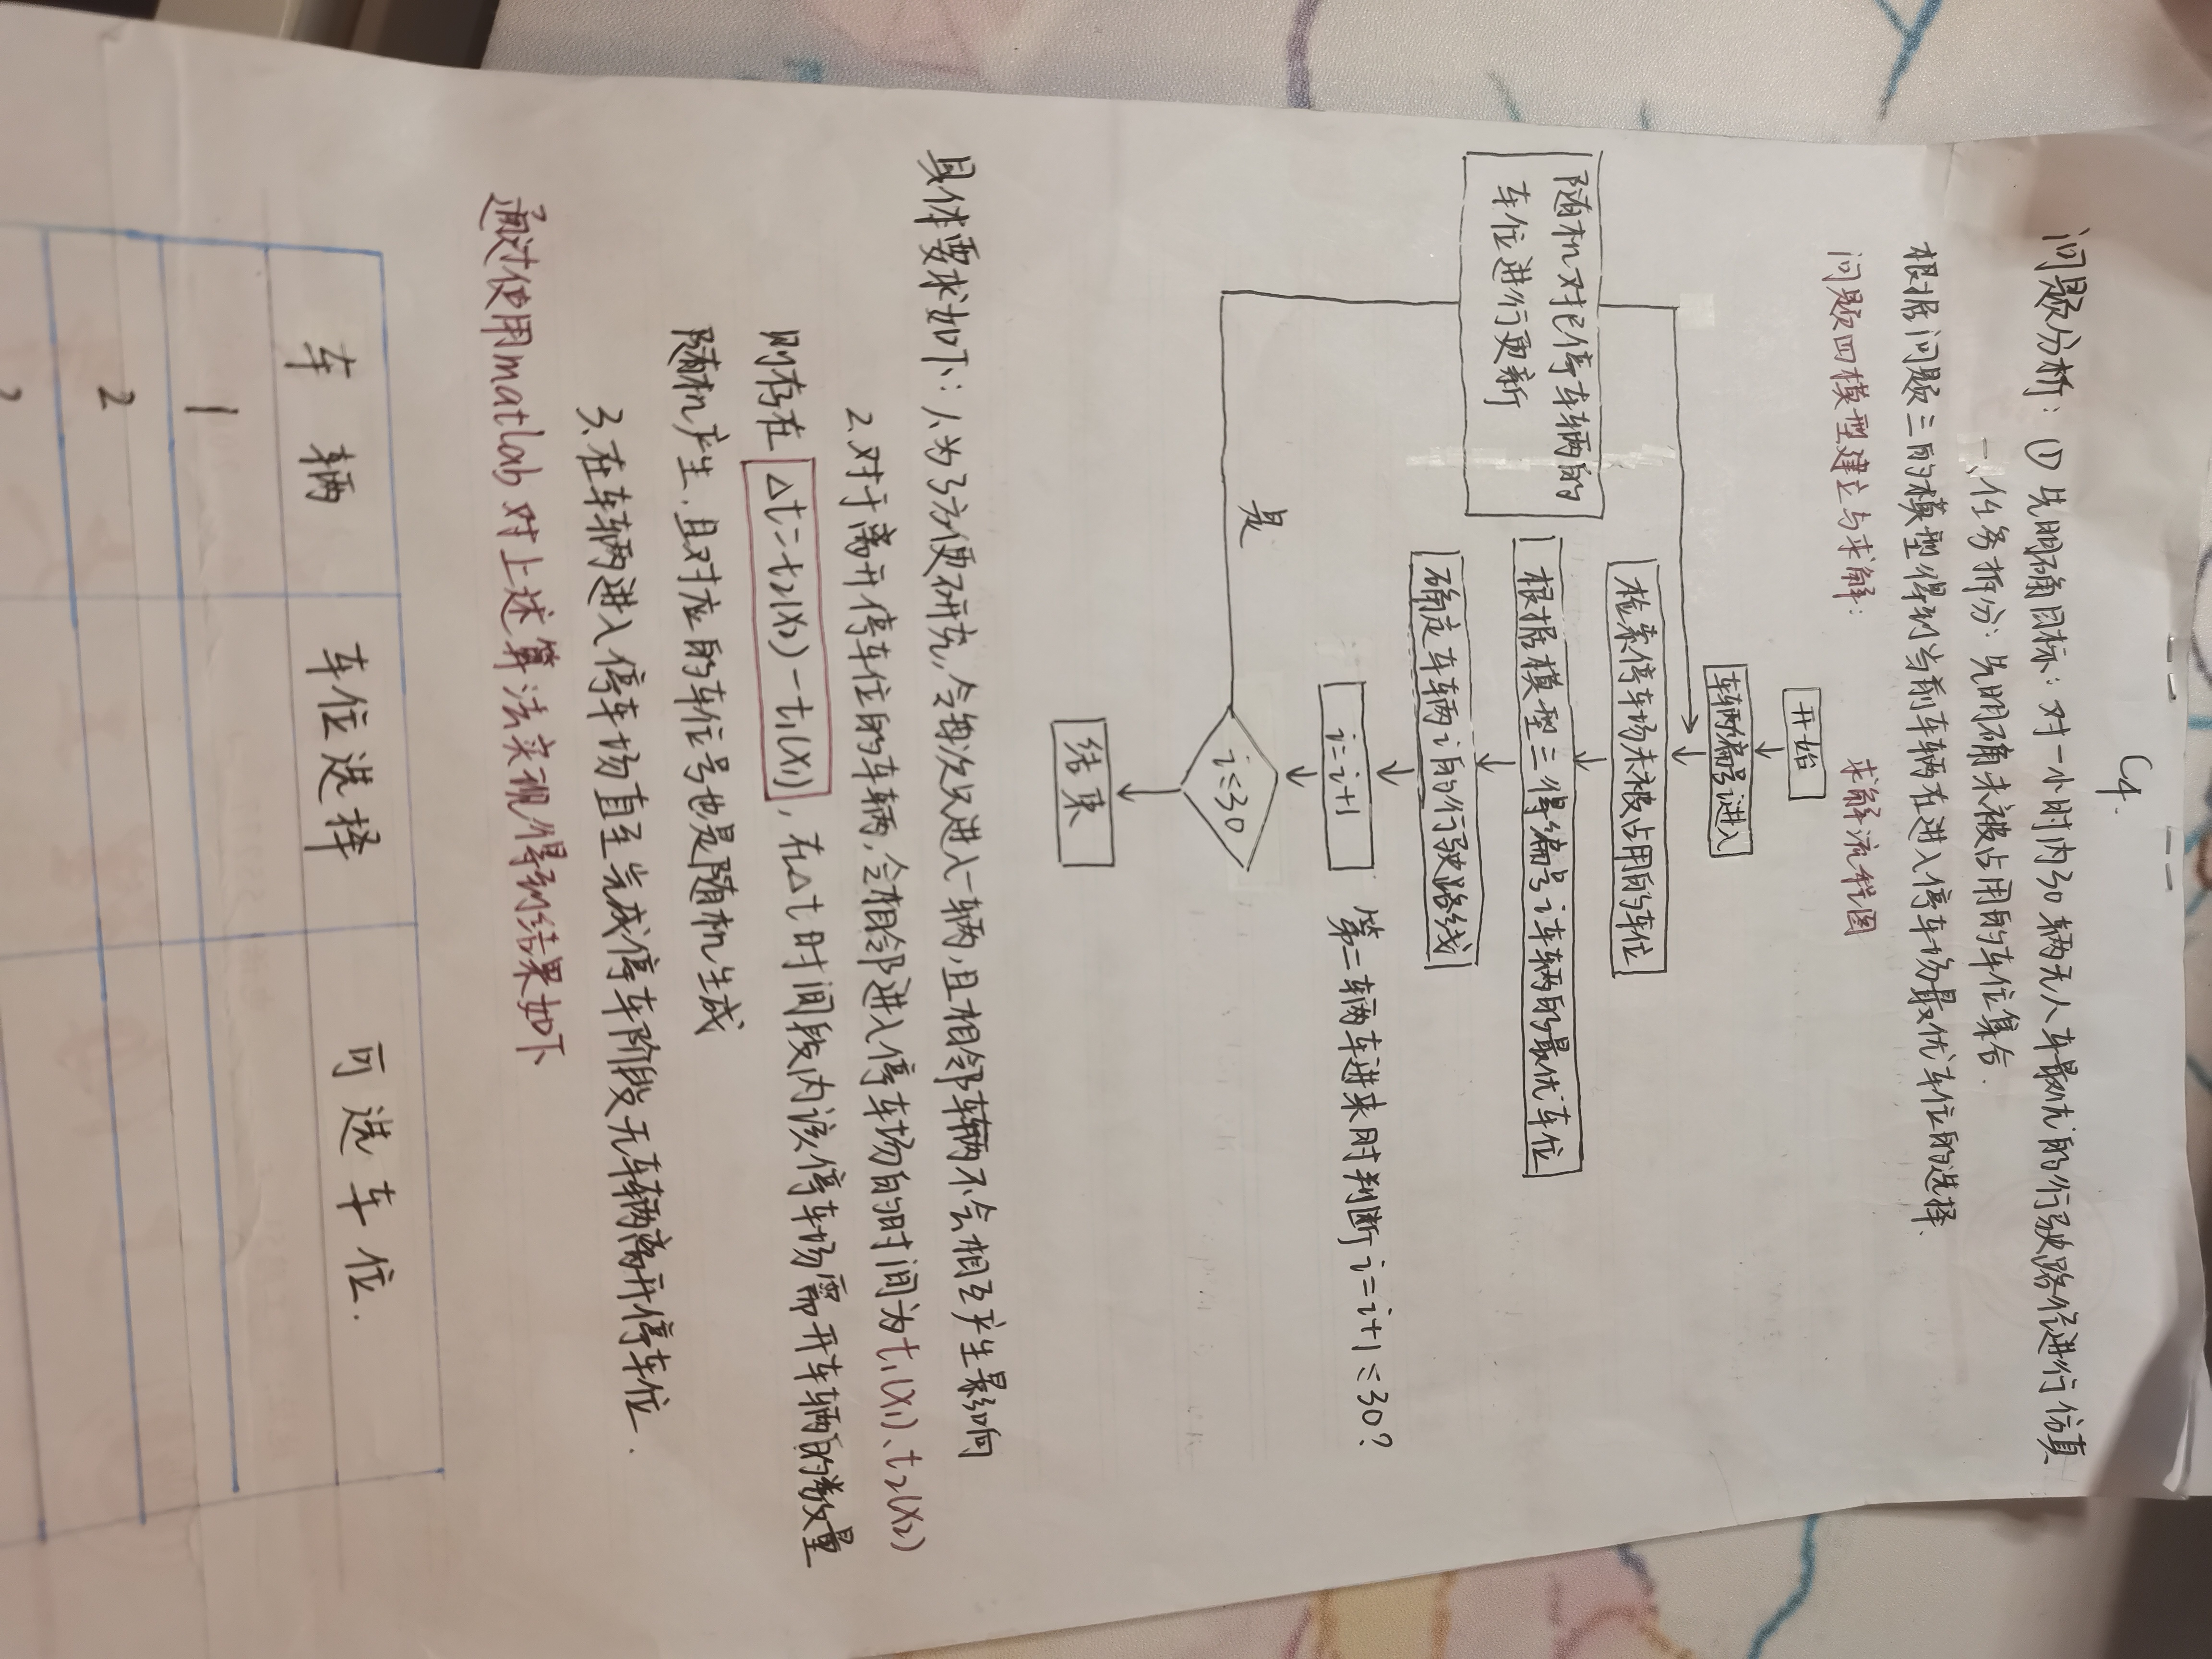 C4.
问题分析：① 先明确目标：对一小时内30辆无人车最优的行驶路径进行仿真
一、任务拆分：先明确未被占用的车位集合.
根据问题三的模型得到当前车辆在进入停车场最优车位的选择.
问题四模型建立与求解：
求解流程图
开始
车辆编号i进入
检索停车场未被占用的车位
随机对已停车辆的
车位进行更新
根据模型三得编号i车辆的最优车位
确定车辆i的行驶路线
i=i+1
第二辆车进来时判断 i=i+1≤30?
是
i≤30
结束
具体要求如下：1.为了方便研究,令每次只进入一辆,且相邻车辆不会相互产生影响
2.对于离开停车位的车辆,令相邻进入停车场的时间为t₁(x₁)、t₂(x₂)
则存在 Δt=t₂(x₂)-t₁(x₁), 在Δt时间段内该停车场需开车辆的数量
随机产生.且对应的车位号也是随机生成
3.在车辆进入停车场直至完成停车阶段无车辆离开停车位.
通过使用matlab对上述算法实现得到结果如下
车辆 车位选择 可选车位.
1
2